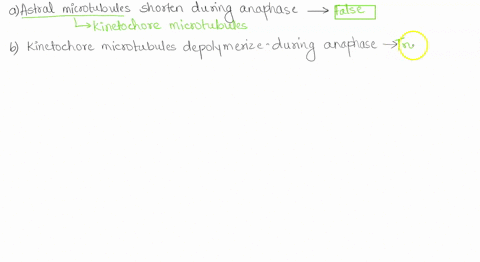 a) Astral microtubules shorten during anaphase → False
↳ Kinetochore microtubules
b) Kinetochore microtubules depolymerize during anaphase →